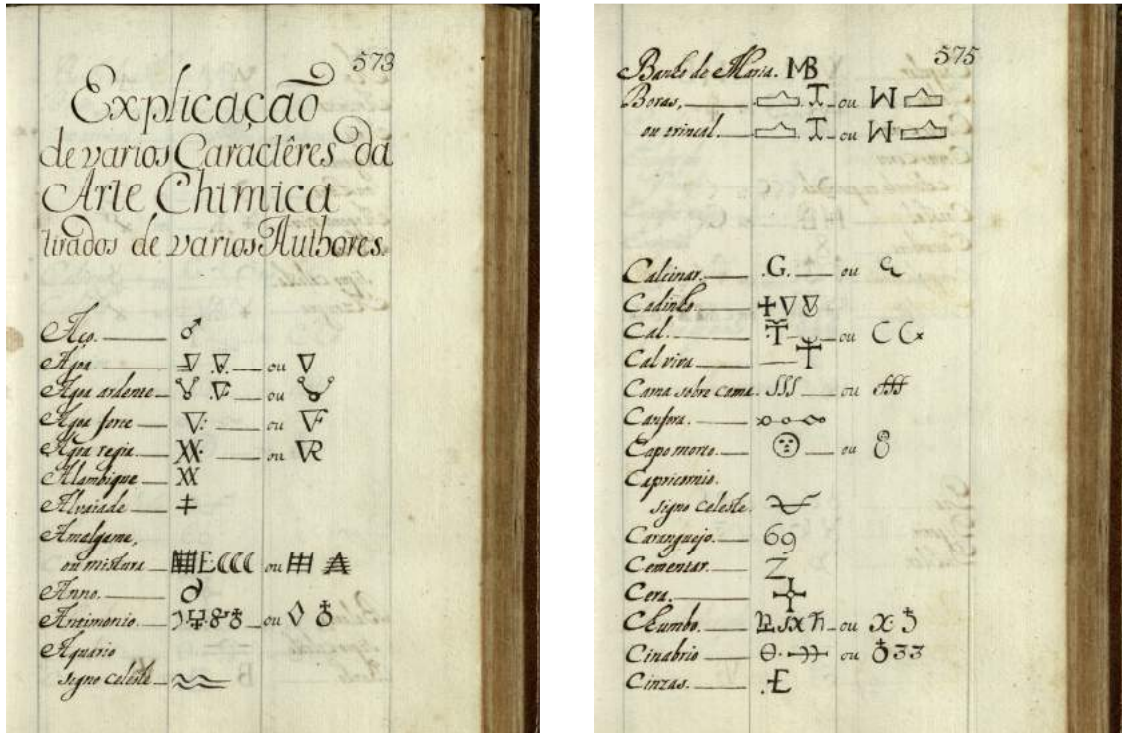 573
Explicação
de varios Caractêres da
Arte Chimica
tirados de varios Authores.
Aço. ♂
Agoa ou ▽
Agoa ardente ou
Agoa forte ▽: ou ▽F
Agoa regia XX. ou ▽R
Alambique XX
Alvaiade ‡
Amalgama,
ou mistura E ou
Anno.
Antimonio. ou ◊ ♁
Aquario
signo celeste ♒
575
Banho de Maria. MB
Boras, ou
ou trincal. ou
Calcinar. .G. ou
Cadinho
Cal. ou C C
Cal viva
Cama sobre cama. SSS ou SSS
Canfora. o-o-oo
Capo morto. ou 8
Capricornio.
signo celeste.
Caranguejo. 69
Cementar. Z
Cera.
Chumbo. ou
Cinabrio ou ♁33
Cinzas. .E